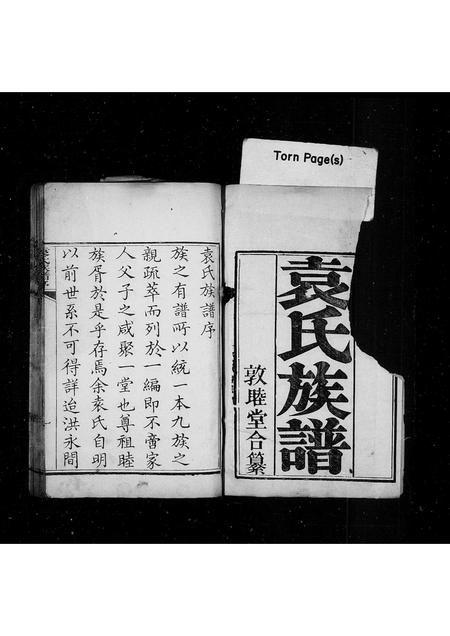 Torn Page(s)
袁氏族譜
敦睦堂合纂
袁氏族譜序
族之有譜所以統一本九族之
親疏萃而列於一編即不啻家
人父子之咸聚一堂也尊祖睦
族胥於是乎存焉余袁氏自明
以前世系不可得詳迨洪永間